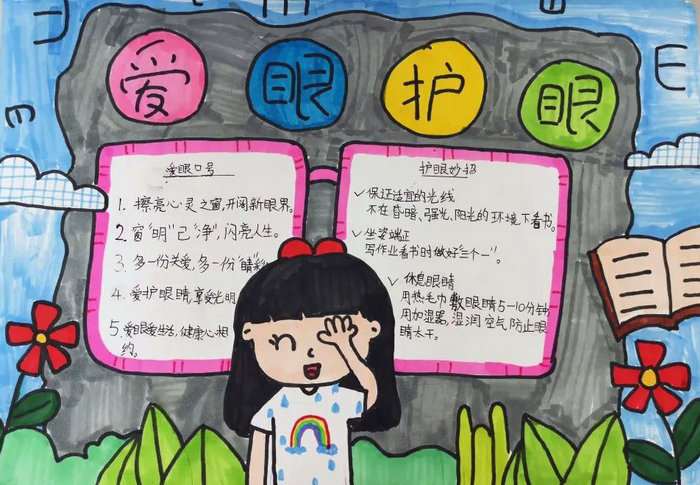 爱眼护眼
爱眼口号
1. 擦亮心灵之窗,开阔新眼界。
2. 窗"明"己"净",闪亮人生。
3. 多一份关爱,多一份"睛"彩
4. 爱护眼睛,享受光明
5. 爱眼爱生活,健康心相
约。
护眼妙招
✓保证适宜的光线
不在昏暗、强光、阳光的环境下看书。
✓坐姿端正
写作业看书时做好"三个一"。
✓休息眼睛
用热毛巾敷眼睛5-10分钟
用加湿器,湿润空气防止眼
睛太干。
E
E
m
E